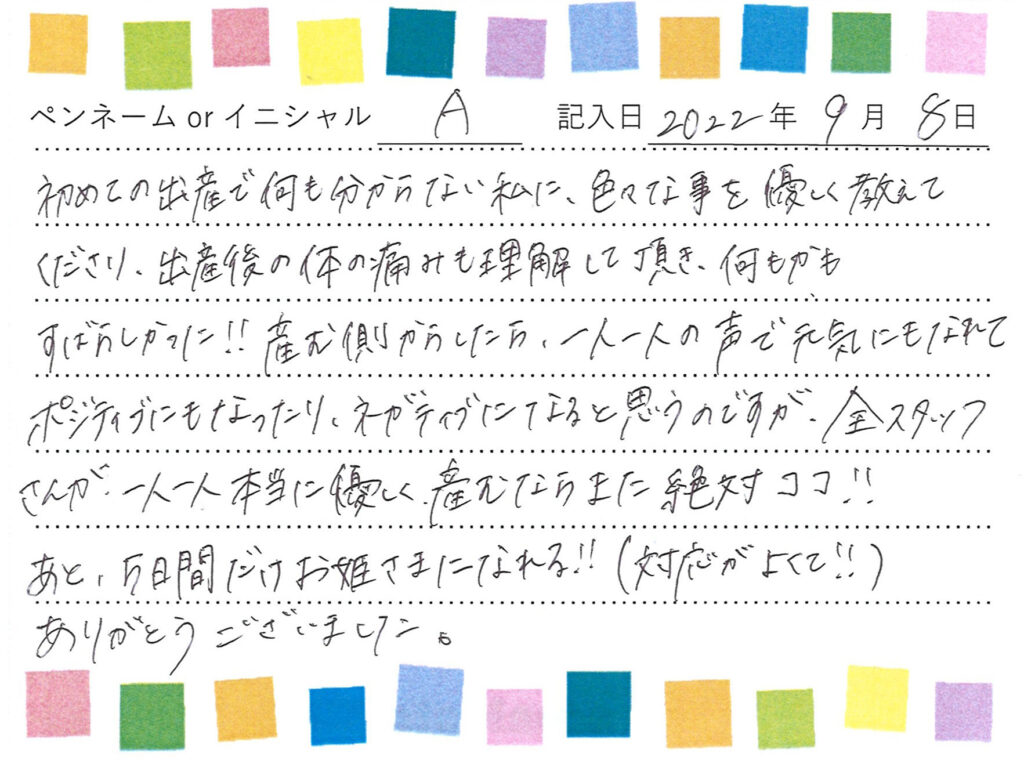 ペンネーム or イニシャル A 記入日 2022年 9月 8日
初めての出産で何も分からない私に、色々な事を優しく教えて
くださり、出産後の体の痛みも理解して頂き、何もかも
すばらしかった!! 産む側からしたら、一人一人の声で元気にもなれて
ポジティブにもなったり、ネガティブにてなると思うのですが、全スタッフ
さんが、一人一人本当に優しく、産むならまた絶対ココ!!
あと、5日間だけお姫さまになれる!! (対応がよくて!!)
ありがとうございました。